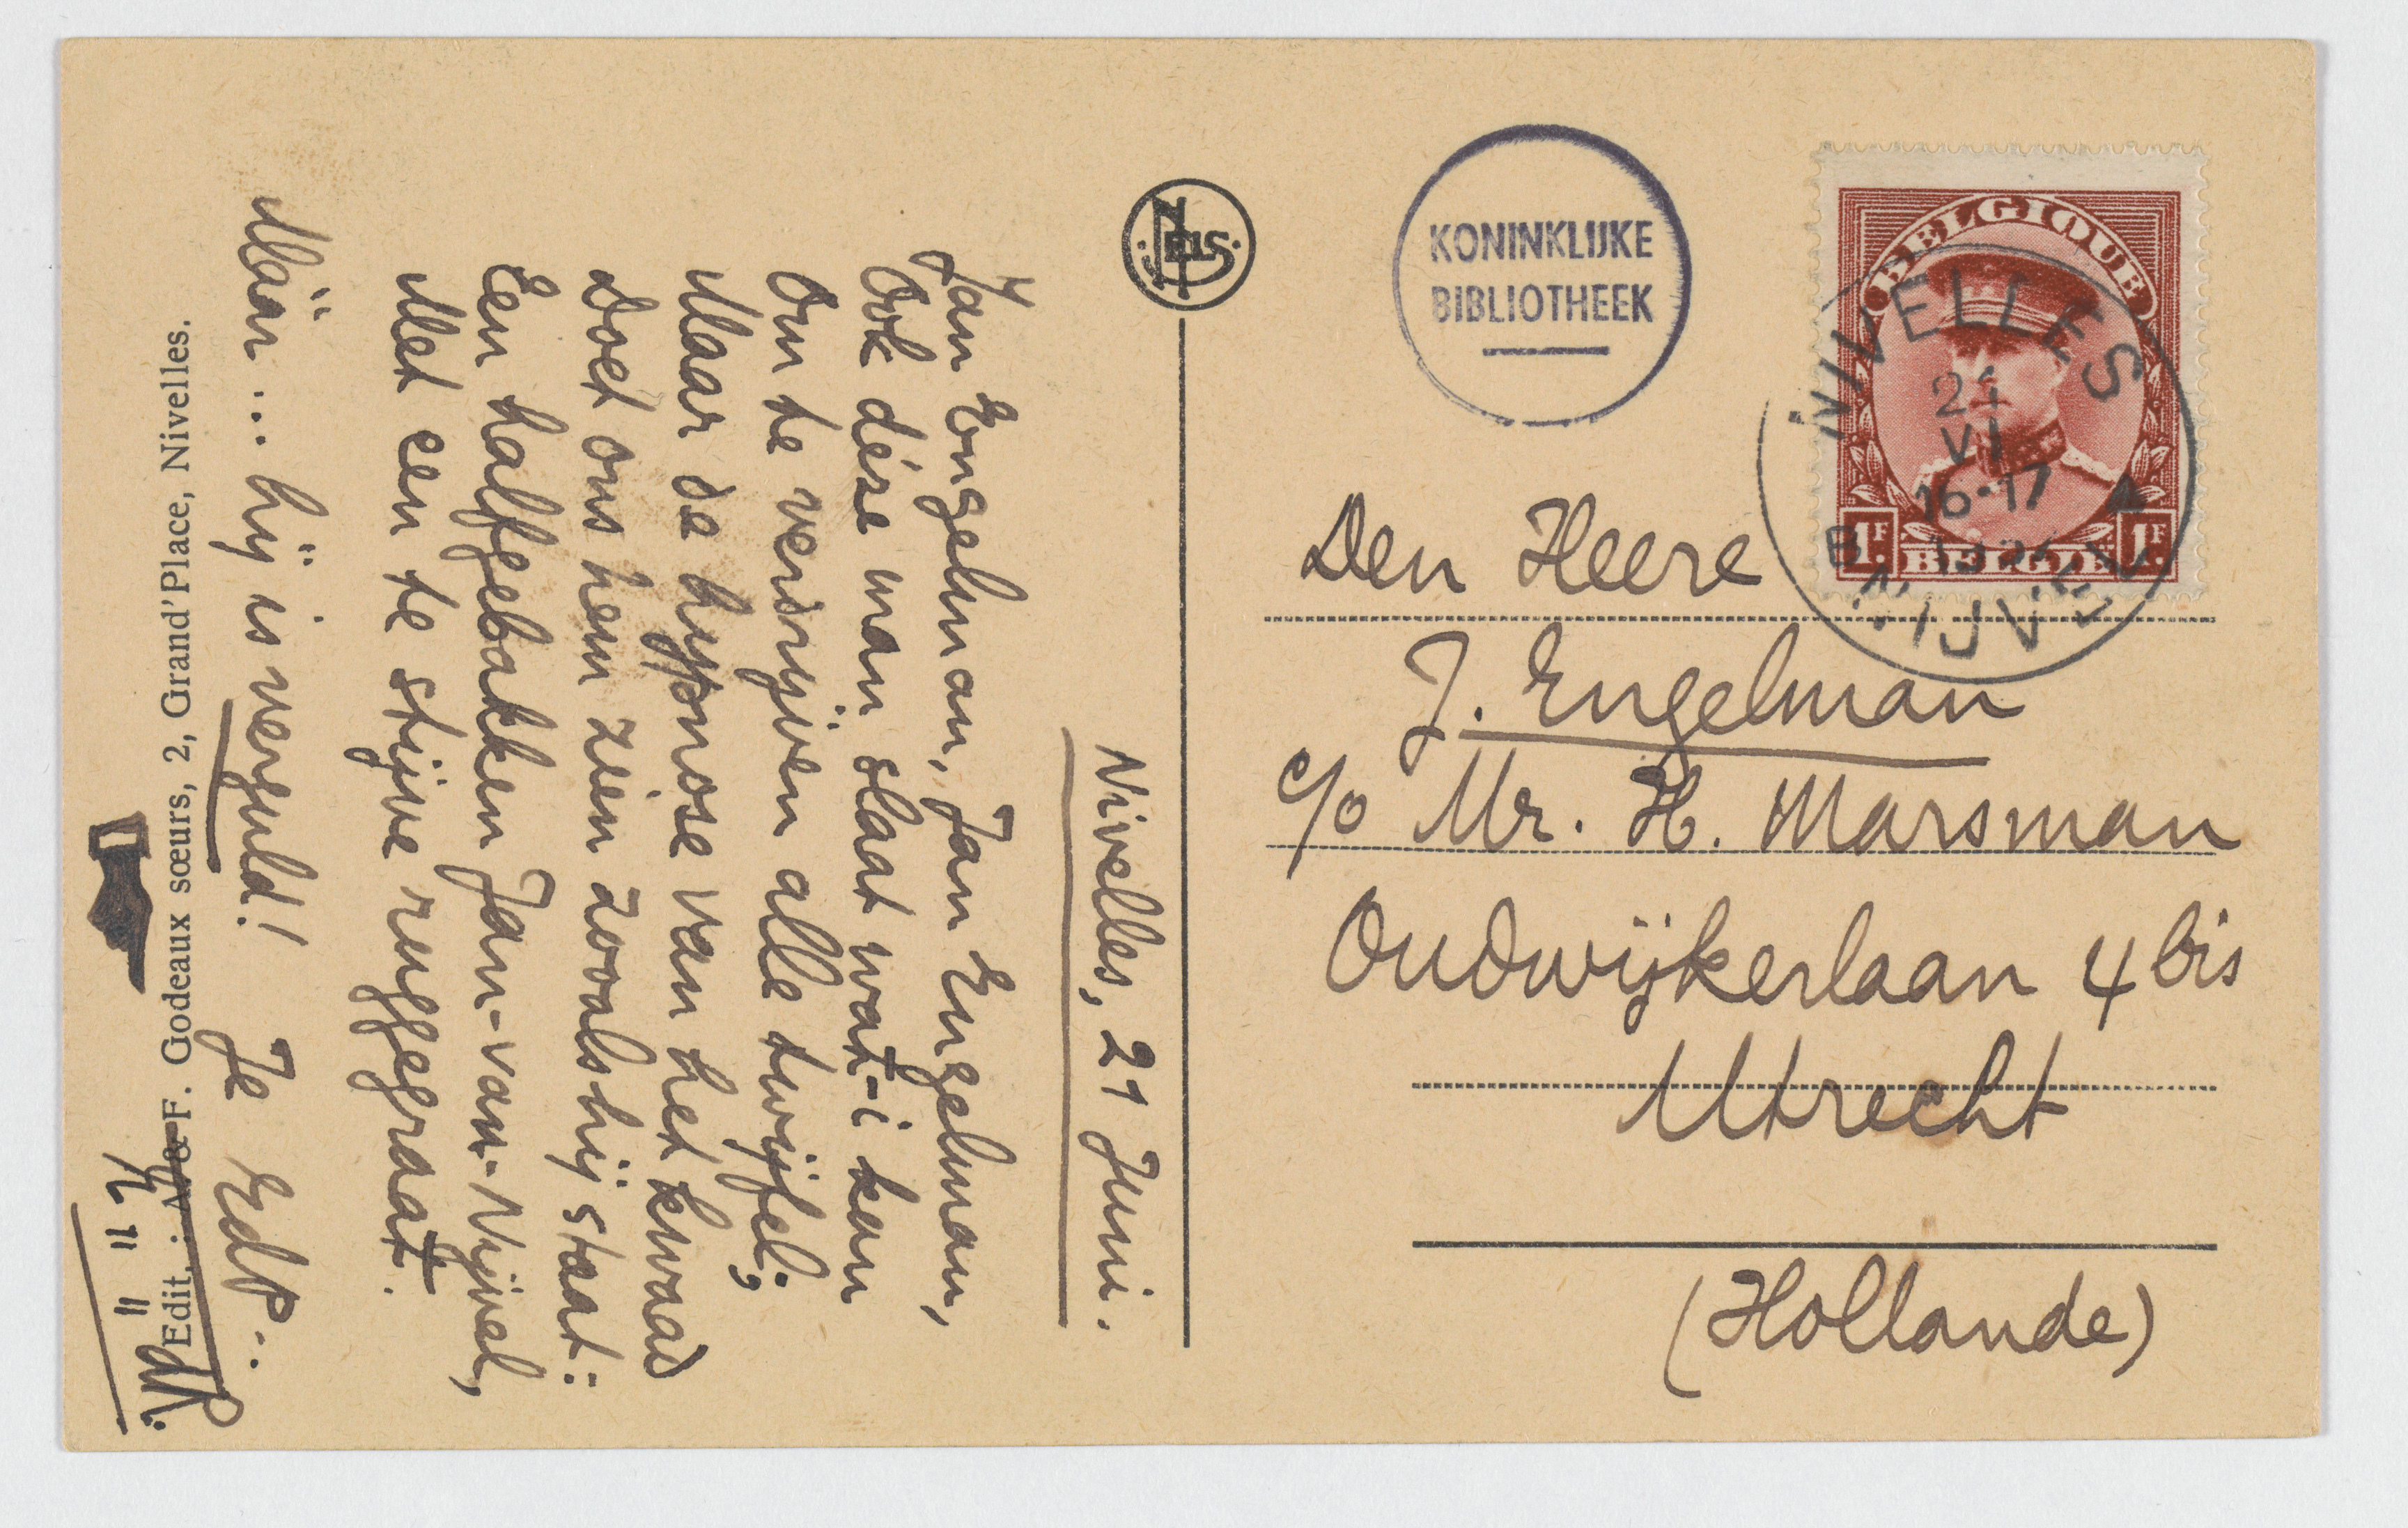 Nivelles, 21 Juni.
Jan Engelman, Jan Engelman,
Ook déze man slaat wat-i kan
Om te verdrijven alle twijfel;
Maar de hypnose van het kwaad
Doet ons hem zien zooals hij staat:
Een halfgebakken Jan-van-Nijvel,
Met een te stijve ruggegraat.
Máár... hij is verguld! Je EdP..
Edit. : A. & F. Godeaux sœurs, 2, Grand'Place, Nivelles.
KONINKLIJKE
BIBLIOTHEEK
BELGIQUE
1F. BELGIE 1F.
NIVELLES
21
VI
16-17
NIJVEL
Den Heere
J. Engelman
c/o Mr. H. Marsman
Oudwijkerlaan 4 bis
Utrecht
(Hollande)